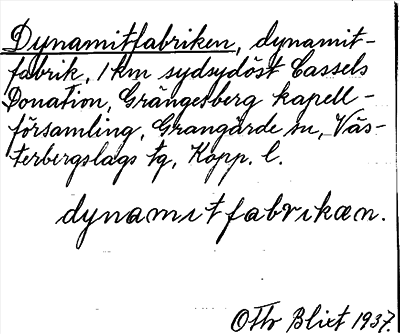 Dynamitfabriken, dynamit-
fabrik, 1 km sydsydöst Cassels
Donation, Grängesberg kapell-
församling, Grangärde sn, Väs-
terbergslags tg, Kopp. l.
dynamitfabrikæn.
Otto Blixt 1937.